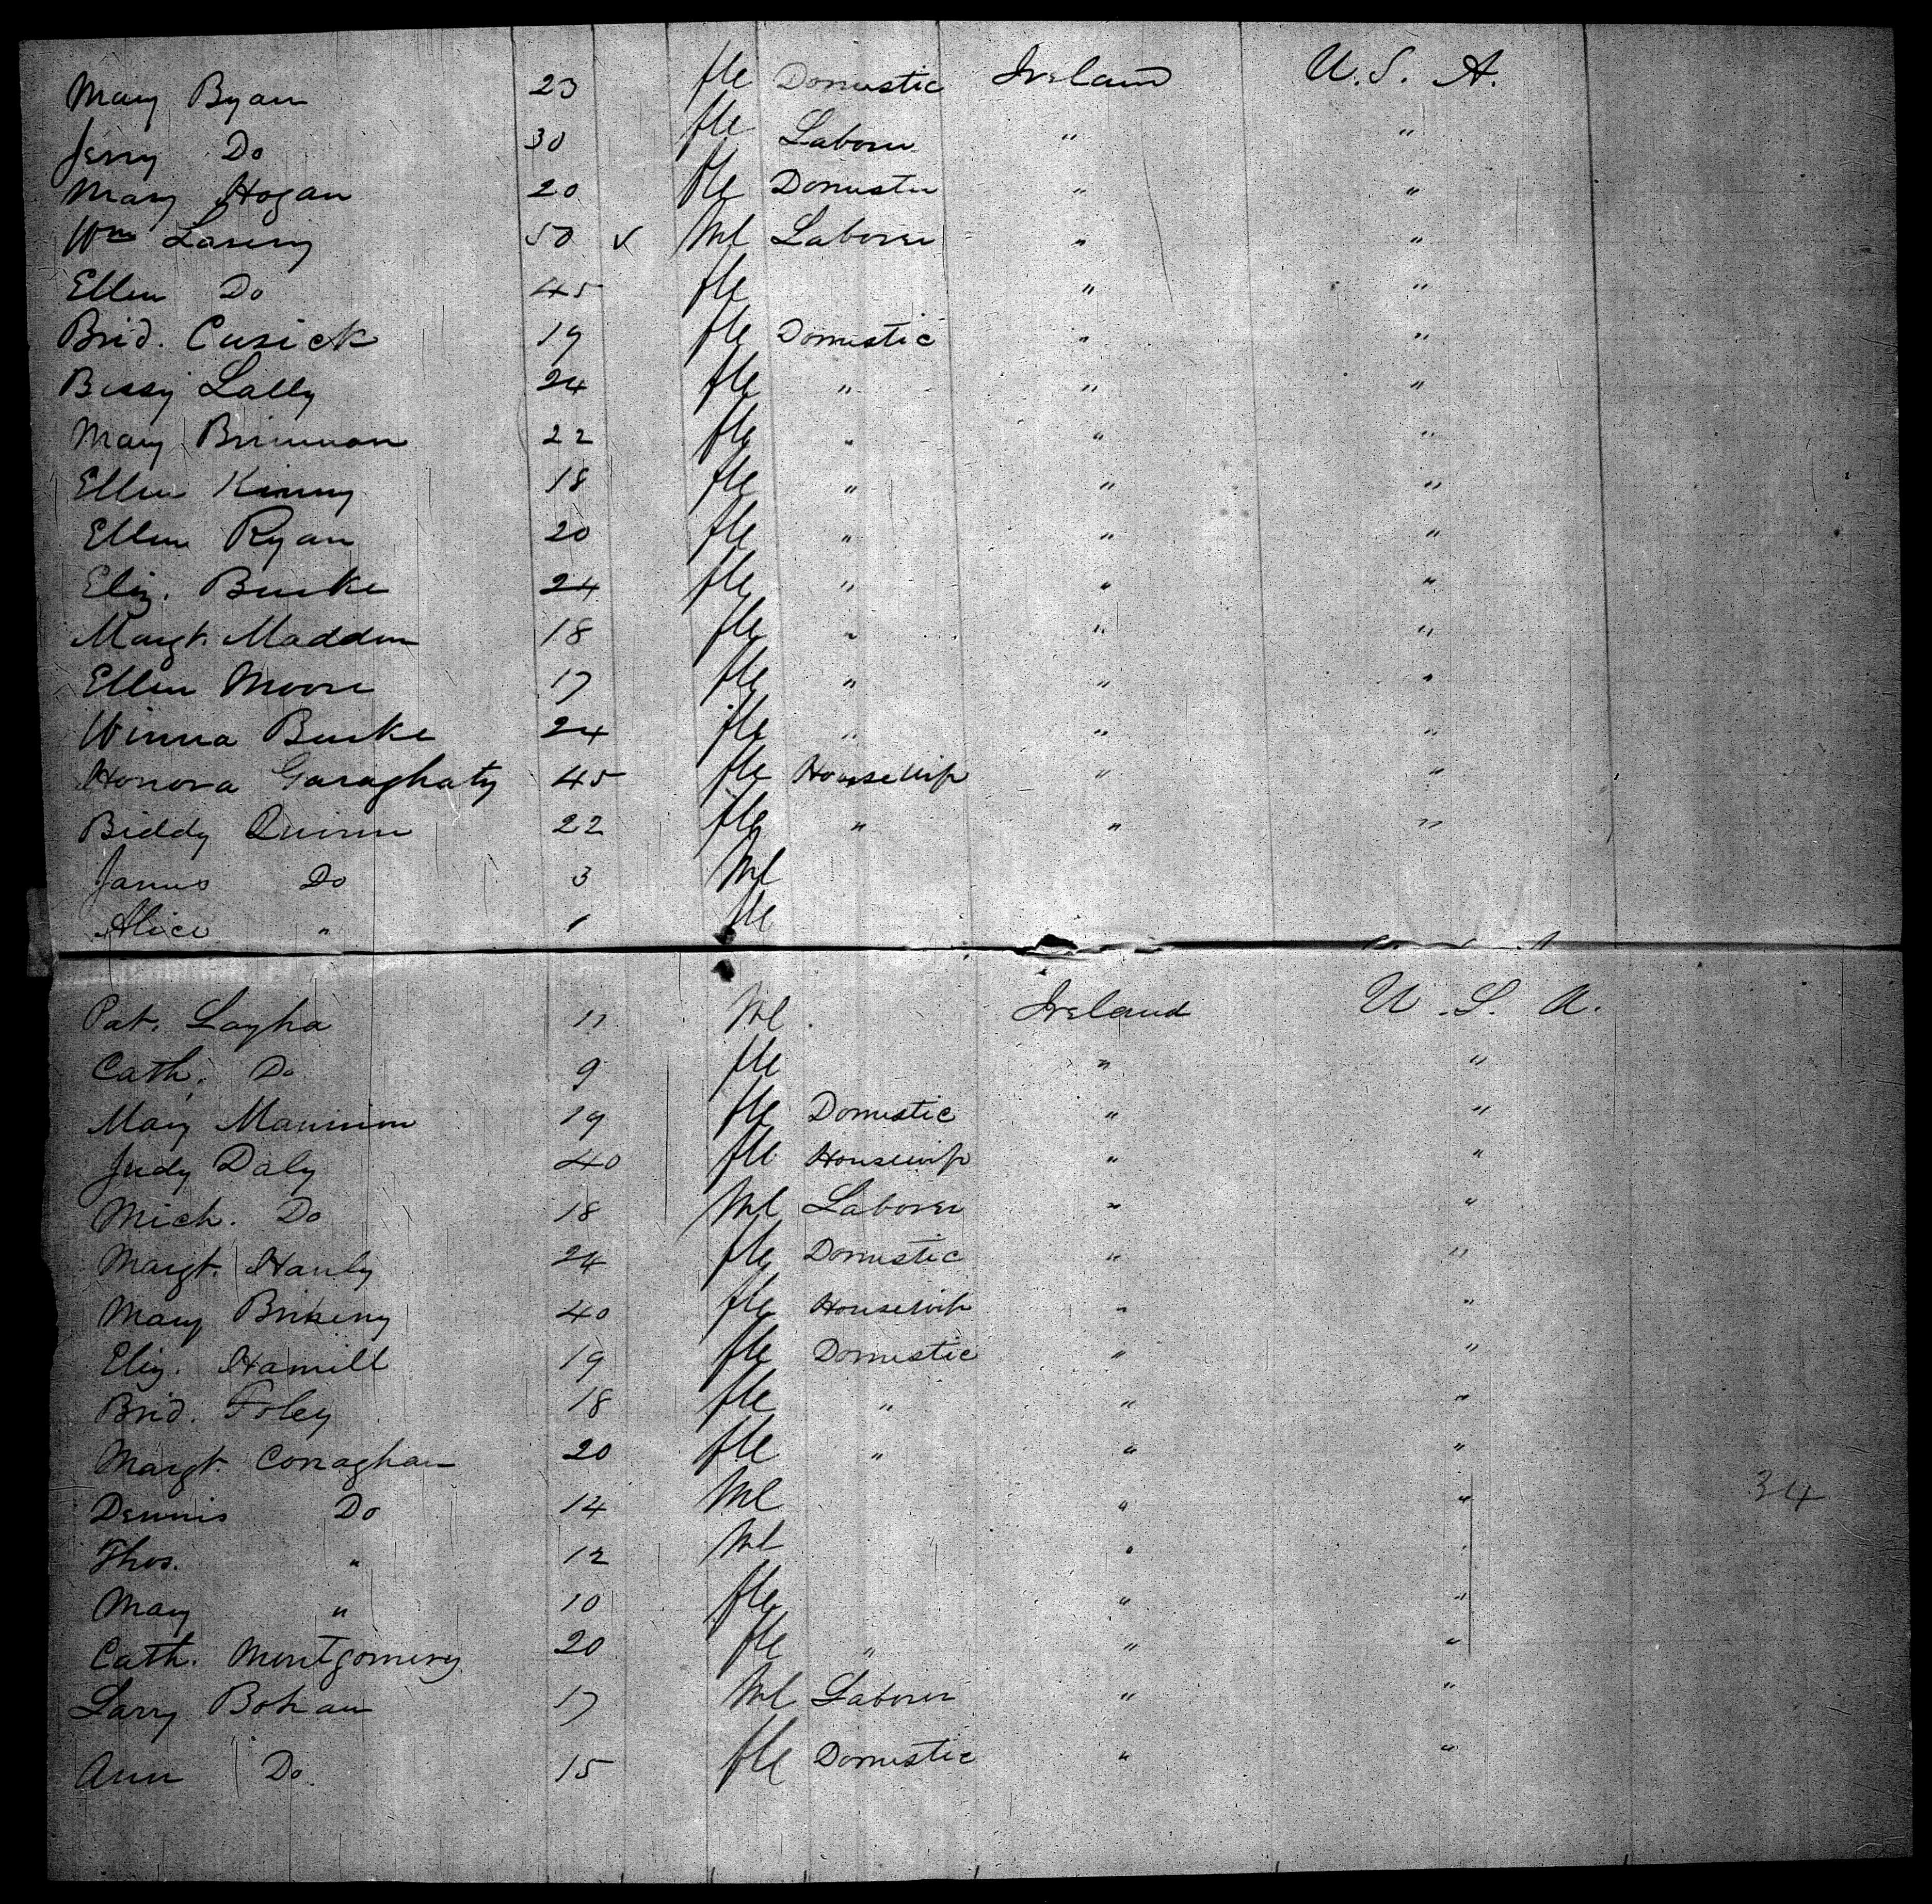 Mary Byan 23 fle Domestic Ireland U.S. A.
Jerry Do 30 fle Laborer " "
Mary Hogan 20 fle Domestic " "
Wm 50 ✓ Ml Laborer " "
Ellen Do 45 fle " "
Brid. Cusick 19 fle Domestic " "
Bessy Lally 24 fle " " "
Mary Brinnan 22 fle " " "
Ellen Kinny 18 fle " " "
Ellen Ryan 20 fle " " "
Eliz. Burke 24 fle " " "
Margt. Madden 18 fle " " "
Ellen Moore 17 fle " " "
Winna Burke 24 fle " " "
Honora Garaghaty 45 fle Housewife " "
Biddy Quinn 22 fle " " "
James Do 3 Ml
Alice " 1 fle
Pat. Layha 11 Ml Ireland U.S. A.
Cath. Do 9 fle " "
Mary Mannion 19 fle Domestic " "
Judy Daly 40 fle Housewife " "
Mich. Do 18 Ml Laborer " "
Margt. Hanly 24 fle Domestic " "
Mary 40 fle Housewife " "
Eliz. Hamill 19 fle Domestic " "
Brid. Foley 18 fle " " "
Margt. Conaghan 20 fle " " "
Dennis Do 14 Ml " " 34
Thos. " 12 Ml " "
Mary " 10 fle " "
Cath. Montgomery 20 fle " " "
Larry Bohan 17 Ml Laborer " "
Ann Do. 15 fle Domestic " "